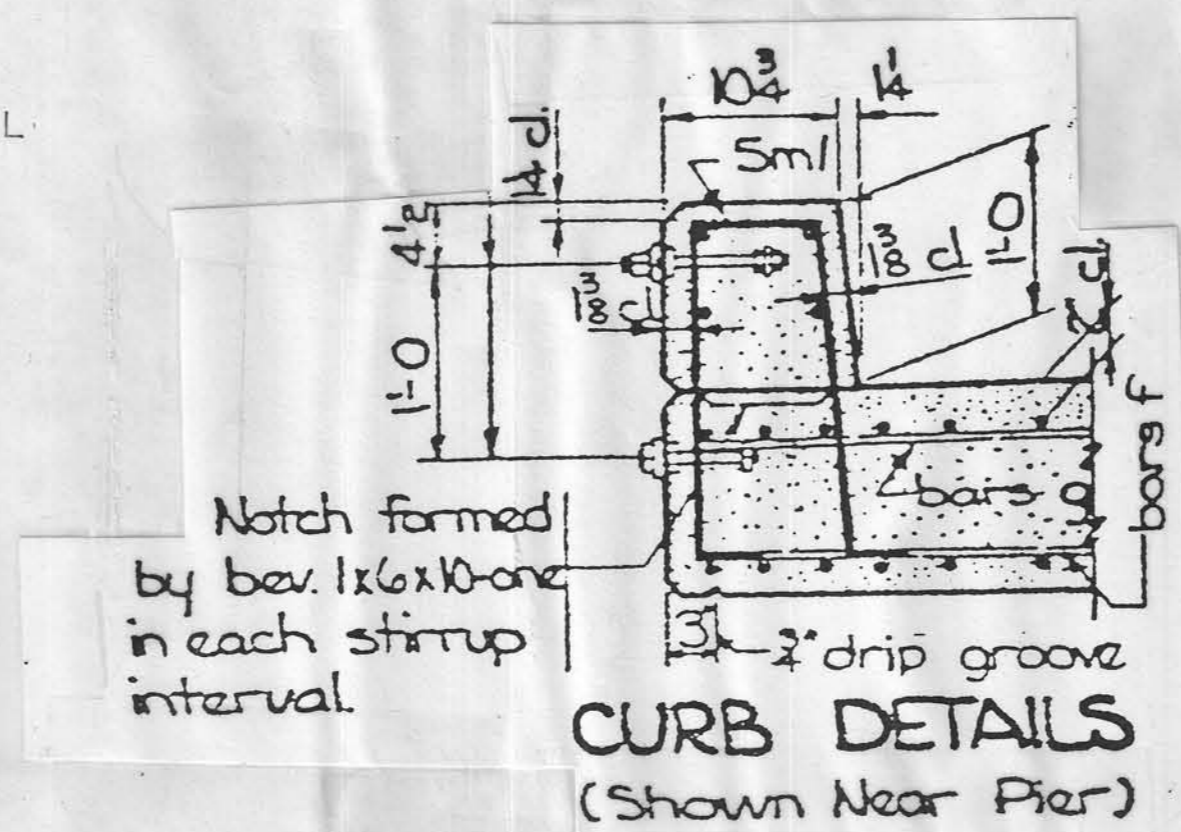 L
10 3/4
1 1/4
1 1/4 cl.
5m1
4 1/2
1 3/8 cl
1 3/8 cl
1'-0
1'-0
cl.
bars g
bars f
Notch formed
by bev. 1x6x10-one
in each stirrup
interval.
3
3/4" drip groove
CURB DETAILS
(Shown Near Pier)